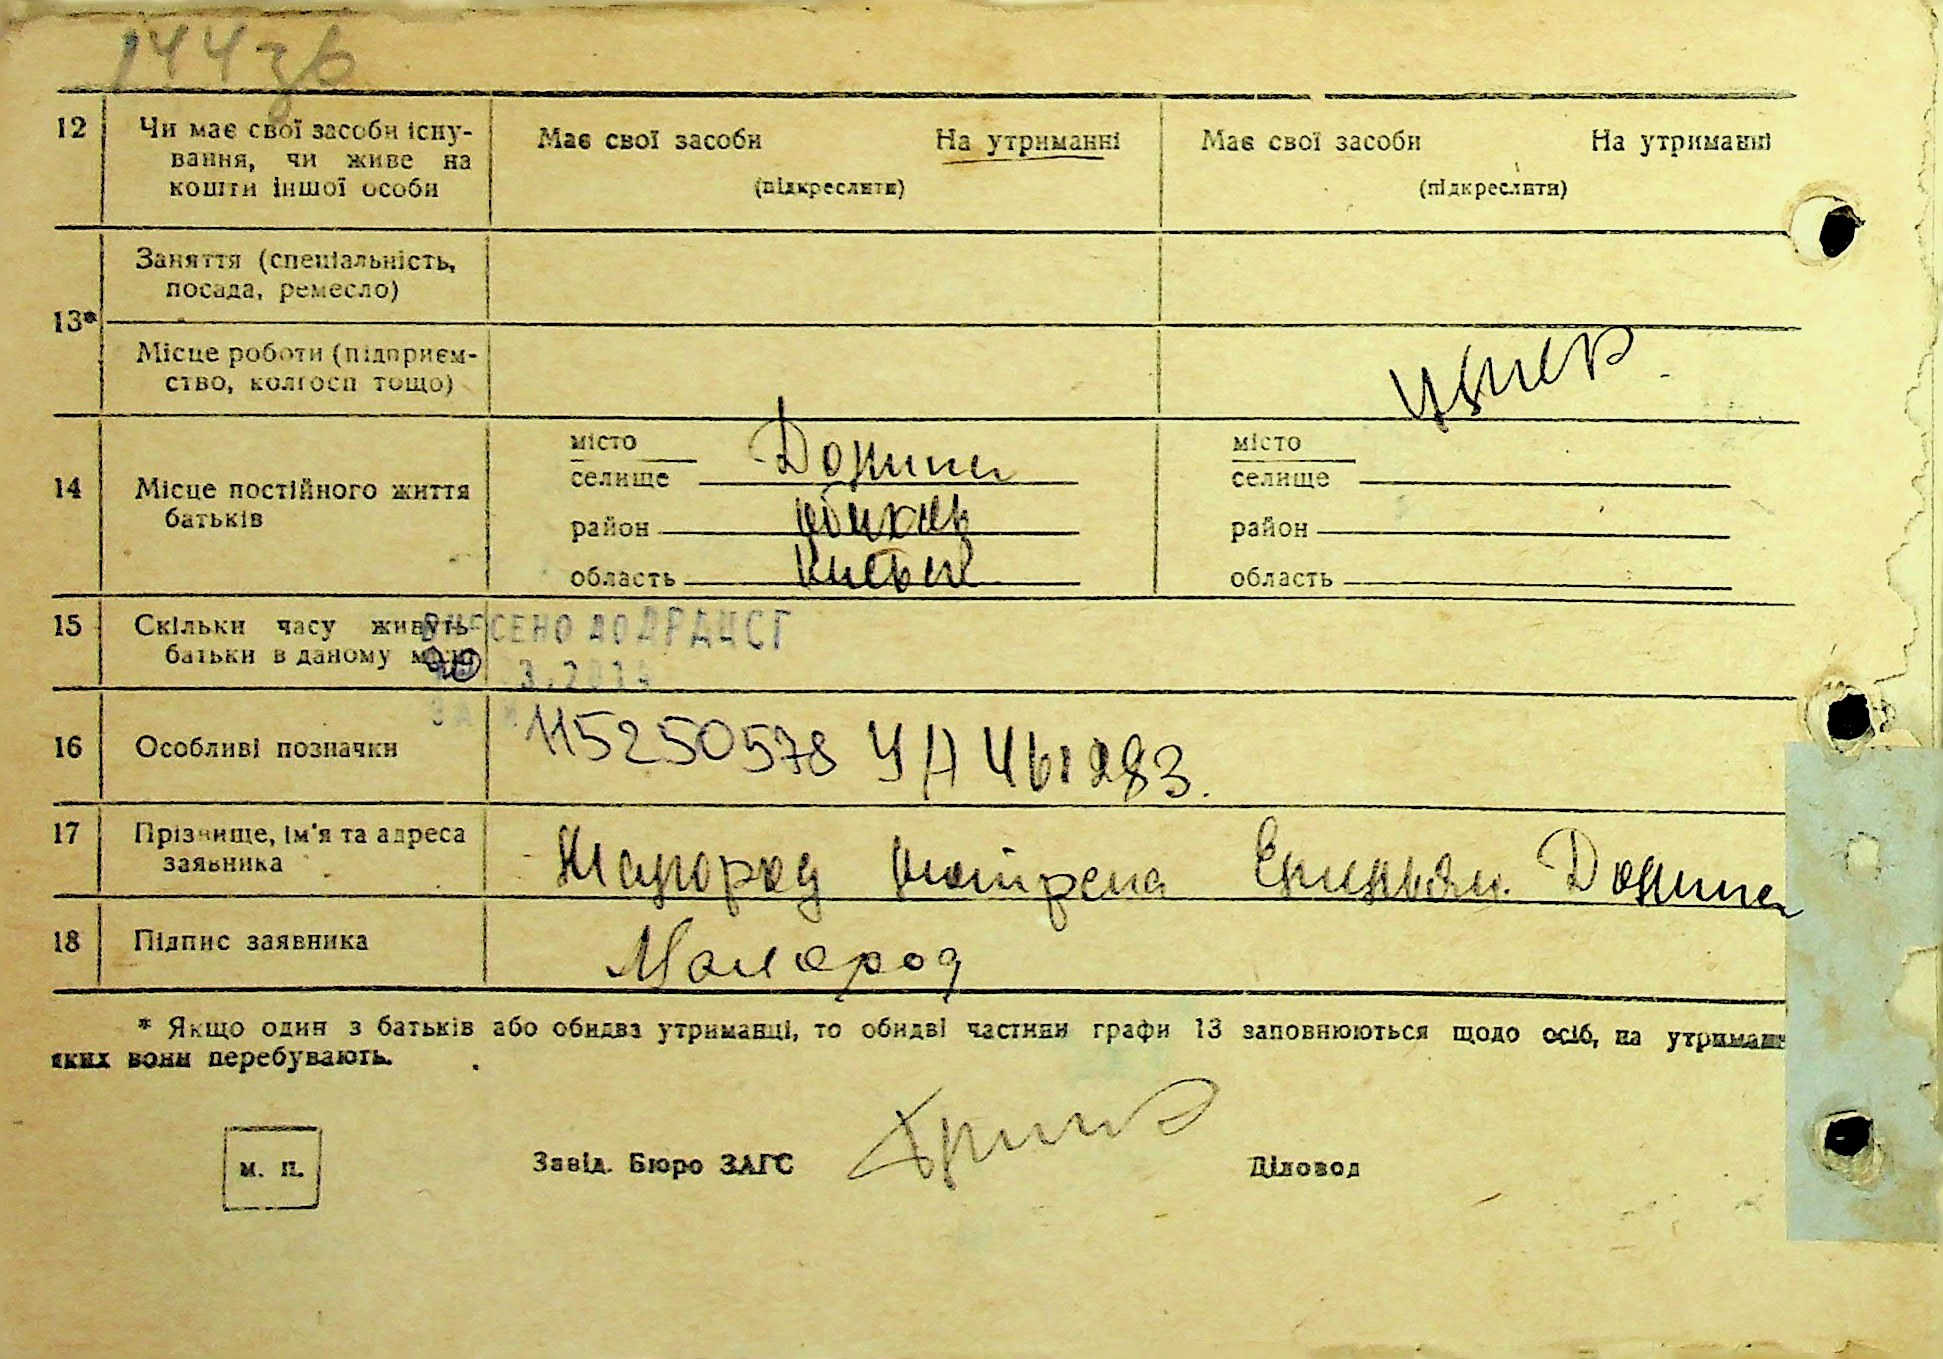 144зв
12 Чи має свої засоби існу-
вання, чи живе на
кошти іншої особи
Має свої засоби На утриманні
(підкреслити)
Має свої засоби На утриманні
(підкреслити)
13*
Заняття (спеціальність,
посада, ремесло)
Місце роботи (підприєм-
ство, колгосп тощо)
14 Місце постійного життя
батьків
місто
селище
район
область
місто
селище
район
область
15 Скільки часу живуть
батьки в даному місці
ВНЕСЕНО ДО ДРАЦСГ
16 Особливі позначки
115250578 УН
17 Прізвище, ім'я та адреса
заявника
18 Підпис заявника
* Якщо один з батьків або обидва утриманці, то обидві частини графи 13 заповнюються щодо осіб, на утриманні
яких вони перебувають.
М. П.
Завід. Бюро ЗАГС
Діловод